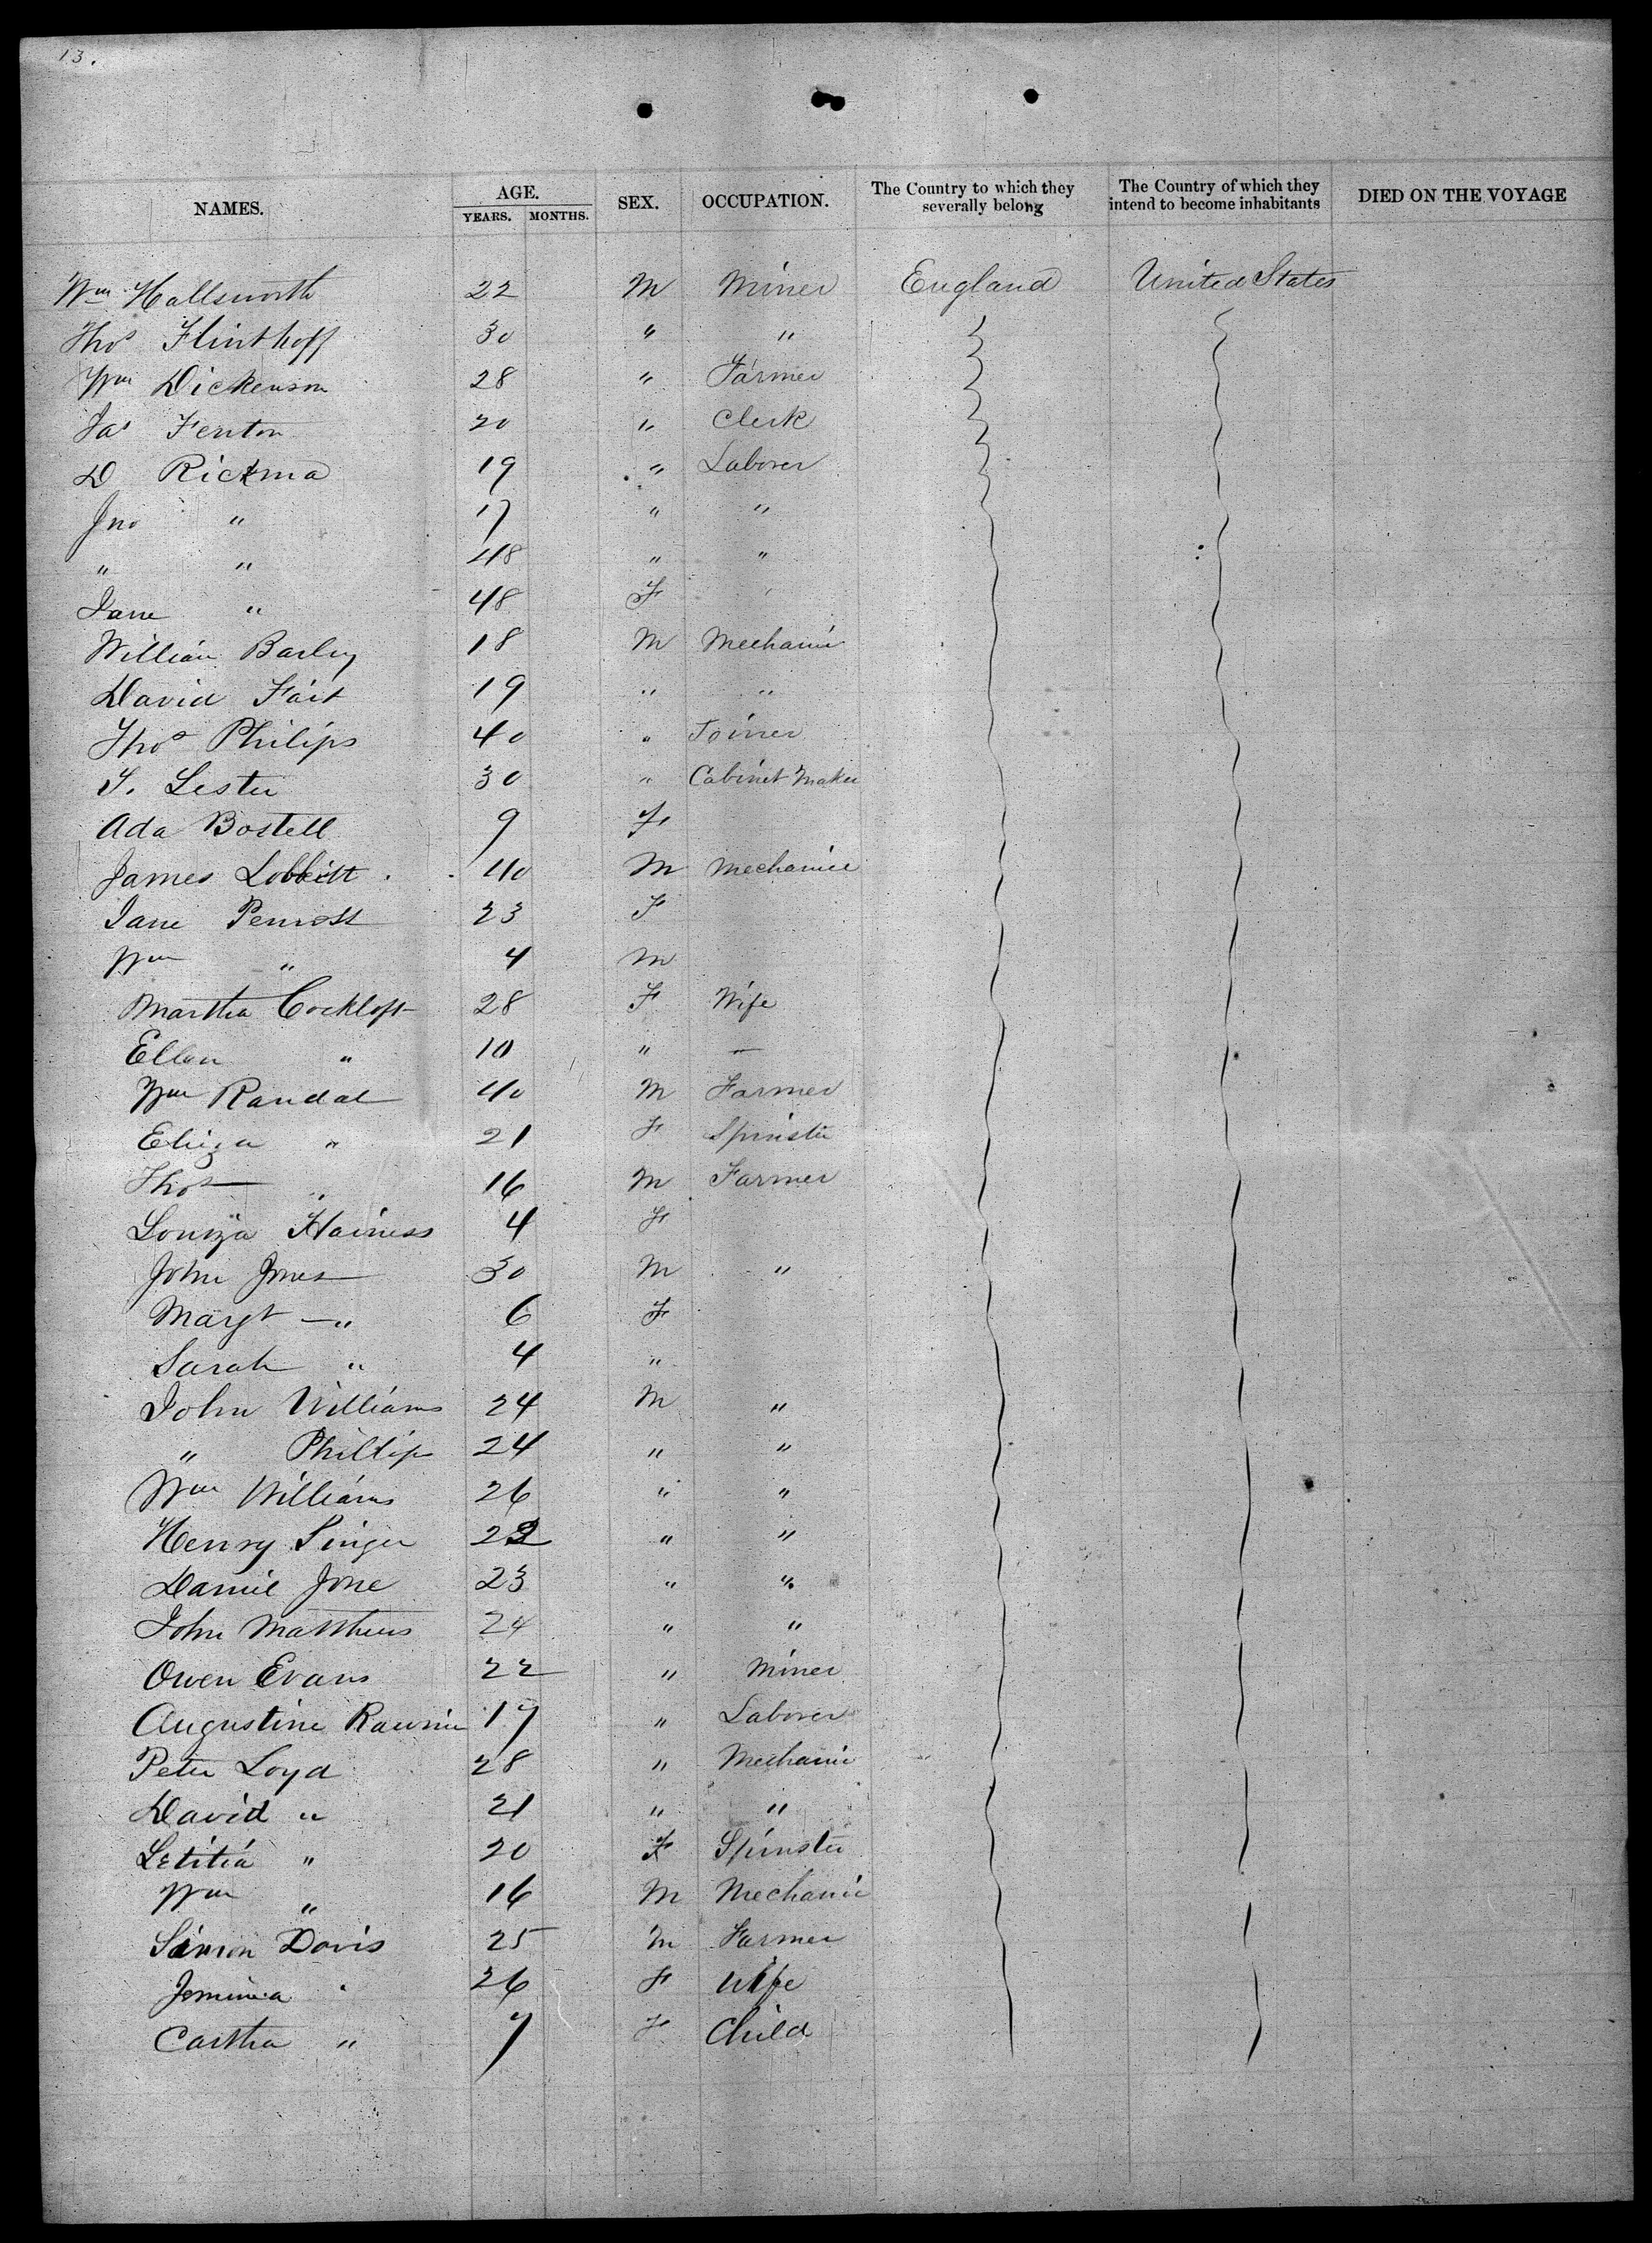 13.
NAMES. AGE. YEARS. MONTHS. SEX. OCCUPATION. The Country to which they severally belong The Country of which they intend to become inhabitants DIED ON THE VOYAGE
Wm Hallsworth 22 M Miner England United States
Thos Flinthoff 30 " "
Wm Dickenson 28 " Farmer
Jas Fenton 20 " Clerk
D Rickma 19 " Laborer
Jno " 17 " "
" " 48 " "
Jane " 48 F "
William Barley 18 M Mechanic
David Fait 19 " "
Thos Philips 40 " Joiner
S. Lester 30 " Cabinet Maker
Ada Bostell 9 F
James Lobbitt 40 M Mechanic
Jane Penrose 23 F
Wm " 4 M
Martha Cockloft 28 F Wife
Ellen " 10 " —
Wm Randal 40 M Farmer
Eliza " 21 F Spinster
Thos " 16 M Farmer
Louiza Hainess 4 F
John Jones 30 M "
Margt " 6 F
Sarah " 4 "
John Williams 24 M "
" Phillip 24 " "
Wm Williams 26 " "
Henry Singer 22 " "
Daniel Jone 23 " "
John Matthews 24 " "
Owen Evans 22 " Miner
Augustine 17 " Laborer
Peter Loyd 28 " Mechanic
David " 21 " "
Letitia " 20 F Spinster
Wm " 16 M Mechanic
Simon Davis 25 M Farmer
Jemima " 26 F Wife
Cartha " 7 F Child